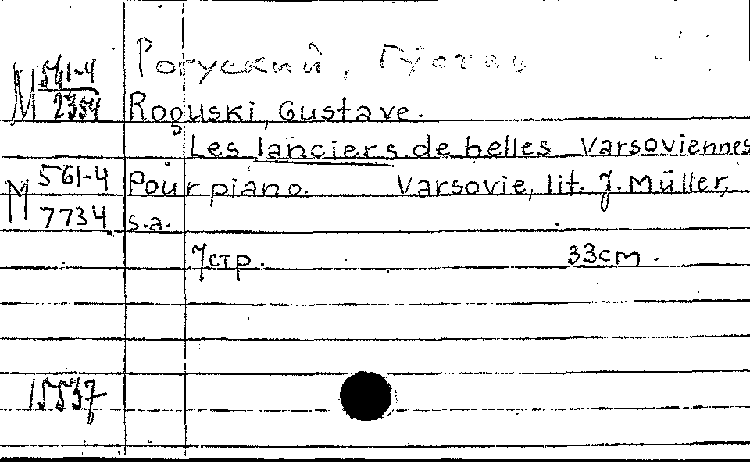 Рогуский, Густав
М 561-4
2354
Roguski, Gustave.
Les lanciers de belles Varsoviennes
М 561-4
7734
Pour piano. Varsovie, lit. J. Müller,
s.a.
7стр. 33cm.
15537